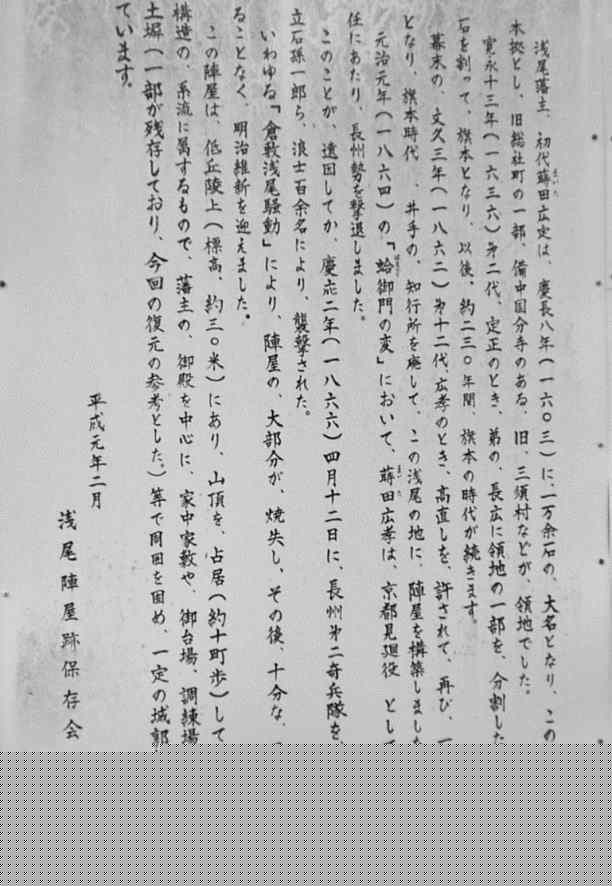 浅尾藩主、初代蒔田広定は、慶長八年(一六〇三)に、一万余石の、大名となり、この
本拠とし、旧総社町の一部、備中国分寺のある、旧、三須村などが、領地でした。
寛永十三年(一六三六)第二代、定正のとき、弟の、長広に領地の一部を、分割した
石を割って、旗本となり、以後、約二三〇年間、旗本の時代が続きます。
幕末の、文久三年(一八六二)第十二代、広孝のとき、高直しを、許されて、再び、一
となり、旗本時代、井手の、知行所を廃して、この浅尾の地に、陣屋を構築しました
元治元年(一八六四)の「蛤御門の変」において、蒔田広孝は、京都見廻役として
任にあたり、長州勢を撃退しました。
このことが、遠因してか、慶応二年(一八六六)四月十二日に、長州第二奇兵隊を、
立石孫一郎ら、浪士百余名により、襲撃された。
いわゆる「倉敷浅尾騒動」により、陣屋の、大部分が、焼失し、その後、十分な、
ることなく、明治維新を迎えました。
この陣屋は、低丘陵上(標高、約三〇米)にあり、山頂を、占居(約十町歩)して
構造の、系流に属するもので、藩主の、御殿を中心に、家中家敷や、御台場、調練場
土塀(一部が残存しており、今回の復元の参考とした。)等で周囲を固め、一定の城郭
ています。
平成元年二月
浅尾陣屋跡保存会